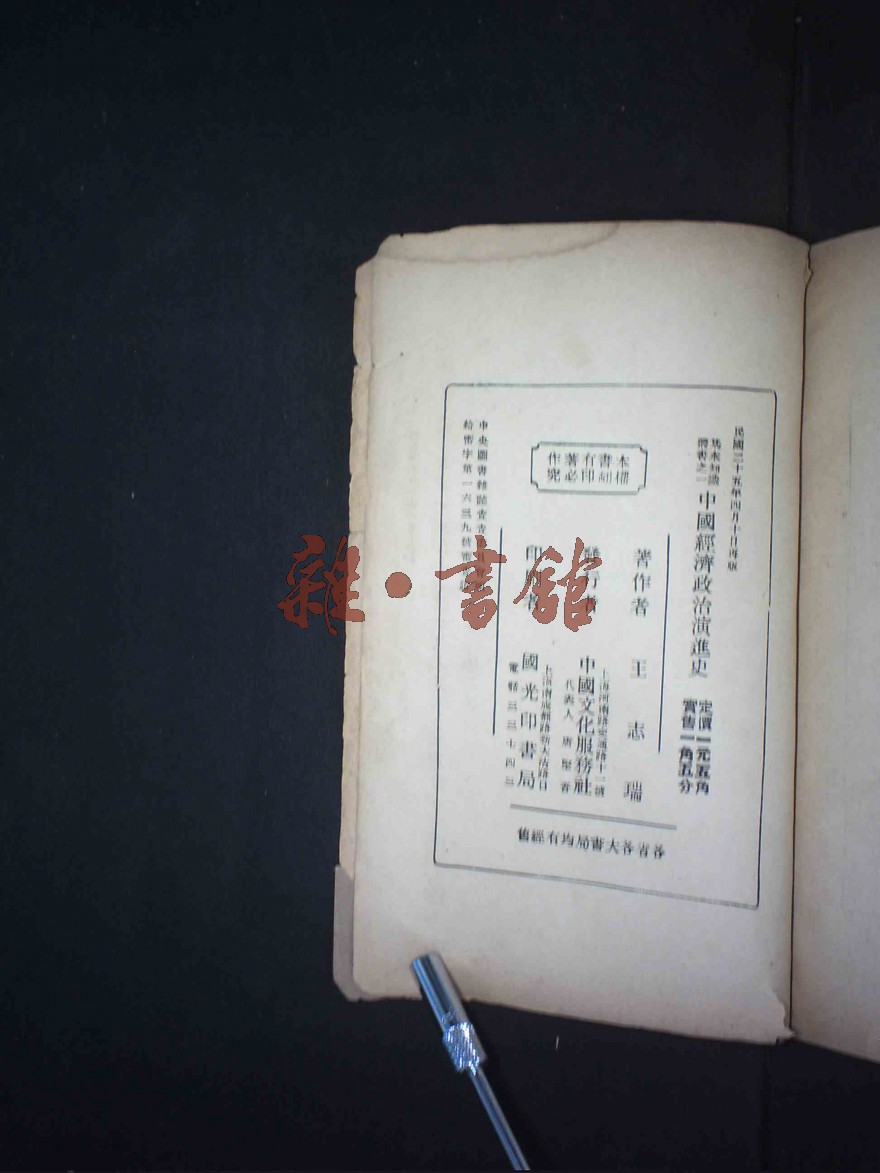 民國二十五年四月十日再版
叢書之一
中國經濟政治演進史
定價一元五角
實售一角五分
著作者 王志瑞
發行者
上海河南路交通路十二號
中國文化服務社
代表人
印刷者
國光印書局
電話三三七四三
本書有著作
權翻印必究
中央圖書雜誌審查
審字第一六三九號
各省各大書局均有經售
雜·書館